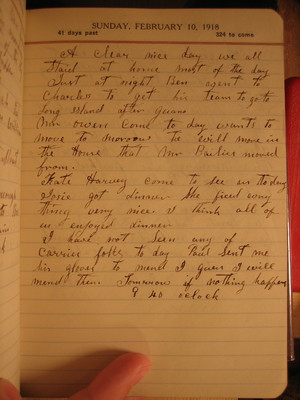 SUNDAY, FEBRUARY 10, 1918
41 days past 324 to come
A Clear nice day we all
Staid at home most of the day
Just at night Ben went to
Charlies to get his team to go to
Long Island after Guano
Mr Owens Come to day wants to
move to morrow he will move in
the House that Mr Parlier moved
from.
Kate Harvey come to see us to day
Josie got dinner She fixed every
thing very nice I think all of
us enjoyed dinner
I have not seen any of
Carrier folks to day Paul Sent me
his gloves to mend I guess I will
mend them Tomorrow if nothing happens
9 40 oclock